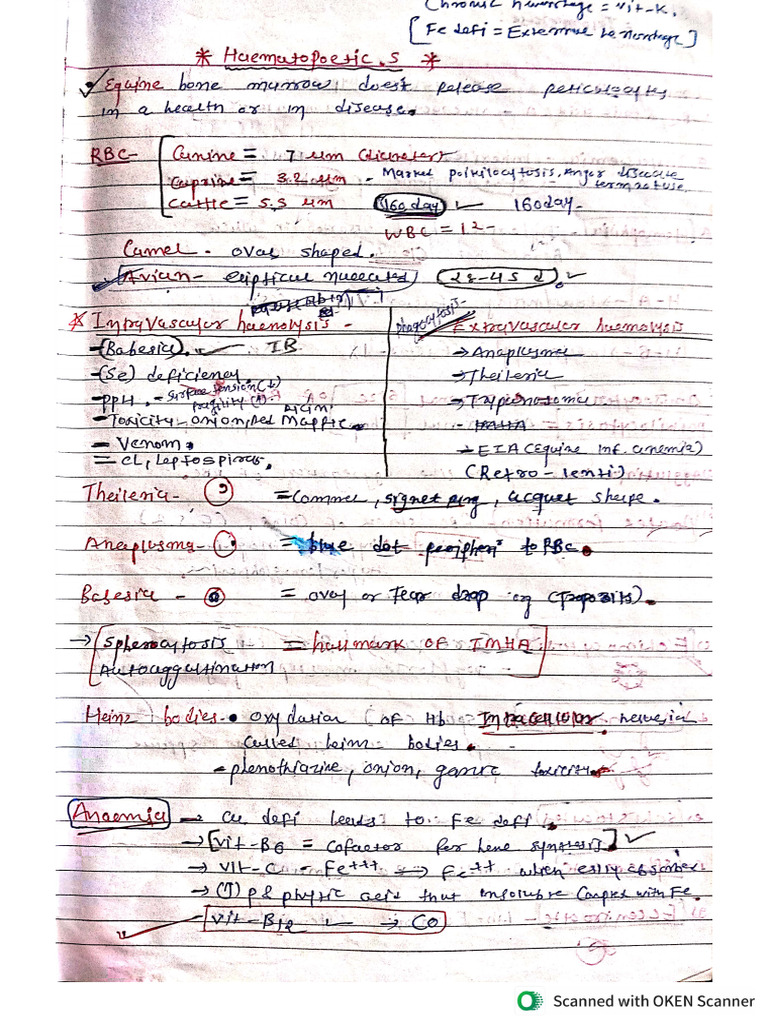 Chronic hemorrhage = Vit-K.
[Fe defi = External hemorrhage]
* Haematopoetic.S *
Equine bone murrow doest release reticulocytes
in a health or in disease.
RBC- Canine = 7 µm (diameter)
Caprine = 3.2 µm - Marked poikilocytosis, Angor disease
Cattle = 5.5 µm 160 day 160 day-
WBC = 12-
Camel - oval shaped.
Avian- eliptical nucleated (28-45 d).
* Intravascular haemolysis -
- (Babesia). IB
- (Se) deficiency
- PPH. - Surface tension (↓)
fragility (↑).
- Toxicity - onion, Red Mapple.
- Venom.
= CL, Leptospiros.
phagocytosis- Extravascular haemolysis
→ Anaplasma
→ Theileria
→ Trypanosoma
- IMHA
→ EIA (Equine inf. anemia)
(Retro - lenti)
Theileria- = Comma, signet ring, racquet shape.
Anaplasma- = blue dot peripheri to RBC.
Babesia - = oval or Tear drop
→ [Spherocytosis = hallmark OF IMHA.
Autoagglutination
Heinz bodies- oxydation of Hb Intracellular
called heinz bodies.
- phenothiazine, onion, garlic toxicity.
Anaemia → Cu defi leads to Fe defi.
→ [Vit-B6 = Cofactor for heme synthesis]
→ Vit-C - Fe+++ ⟺ Fe++ when easily absorbe
→ (↑) P & phytic acid that insoluble Complex with Fe.
- Vit-B12 → CO
Scanned with OKEN Scanner